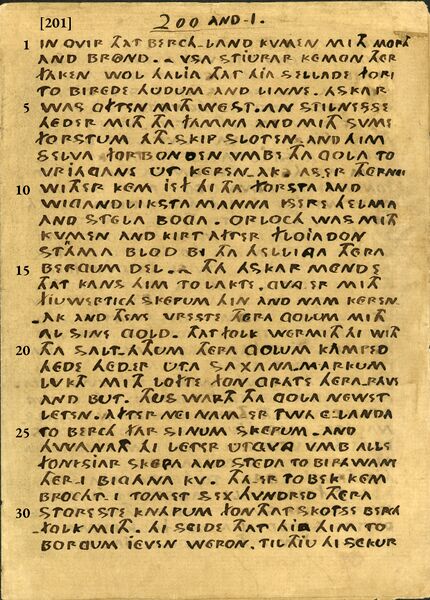 [201]
200 AND-1.
1 IN OVIR THAT BERCH-LAND KVMEN MITH MORTH
AND BROND..- VSA STIURAR KEMON THER
TAKEN WOL HALIA THAT HIA SELLADE FORI
TO BIREDE HUDUM AND LINNE. ASKAR
5 WAS OFTEN MITH WEST. AN STILNESSE
HEDER MITH THA FAMNA AND MITH SVME
FORSTUM HTH. SKIP SLOTEN. AND HIM
SELVA FORBONDEN VMBE THA GOLA TO
VRJAGANE UT KEREN. AK. AS.ER THERNEI
10 WITHER KEM IEF HI THA FORSTA AND
WIGANDLIKSTA MANNA YSERE HELMA
AND STELA BOGA. ORLOCH WAS MITH
KVMEN AND KIRT AFTER FLOJADON
STRAMA BLOD BI THA HELLIGA THERA
15 BERGUM DEL..- THA ASKAR MENDE
THAT KANS HIM TOLAKTE. GVG.ER MITH
FIUWERTICH SKEPUM HIN AND NAM KEREN
.AK AND THENE VRESTE THERA GOLUM MITH
AL SINE GOLD. THAT FOLK WERMITH HI WITH
20 THA SALT-ATHUM THERA GOLUM KAMPED
HEDE HED.ER UTA SAXANA.MARKUM
LVKT MITH LOFTE FON GRATE HERA.RAVE
AND BUT. THUS WARTH THA GOLA NEWET
LETEN. AFTER NEI NAM ER TWA E-LANDA
TO BERCH FAR SINUM SKEPUM. AND
25 HWANATH HI LETER UTGVNG VMB ALLE
FONISIAR SKEPA AND STEDA TO BIRAWANE
THER.I BIGANA KV. THA.ER TOBEK KEM
BROCHT.I TOMET SEX HVNDRED THERA
30 STORESTE KNAPUM FON THAT SKOTSE BERCH
FOLK MITH. HI SEIDE THAT HIA HIM TO
BORGUM IEVEN WERON. TIL THIU HI SEKUR